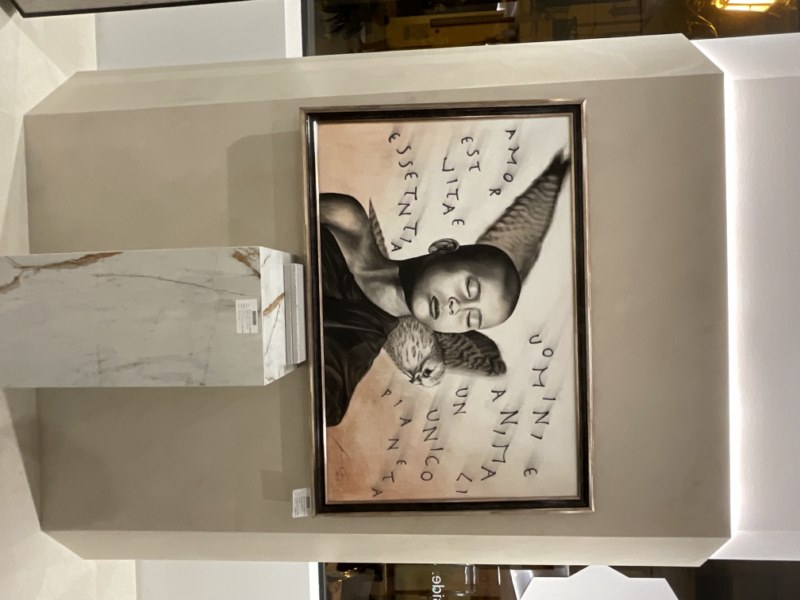 AMOR
EST
VITAE
ESSETNTIA
UOMINI E
ANIMALI
UN
UNICO
PIANETA
ide.